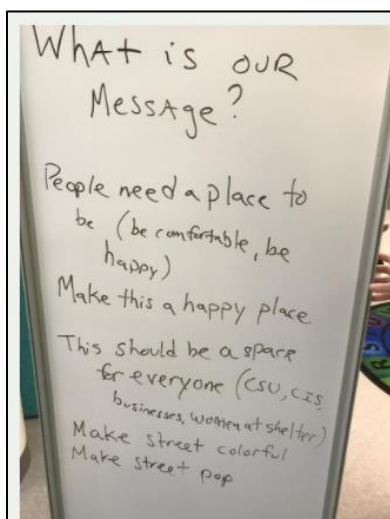 What is OUR
Message?
People need a place to
be (be comfortable, be
happy)
Make this a happy place
This should be a space
for everyone (CSU, CIS,
businesses, women at shelter)
Make street colorful
Make street pop